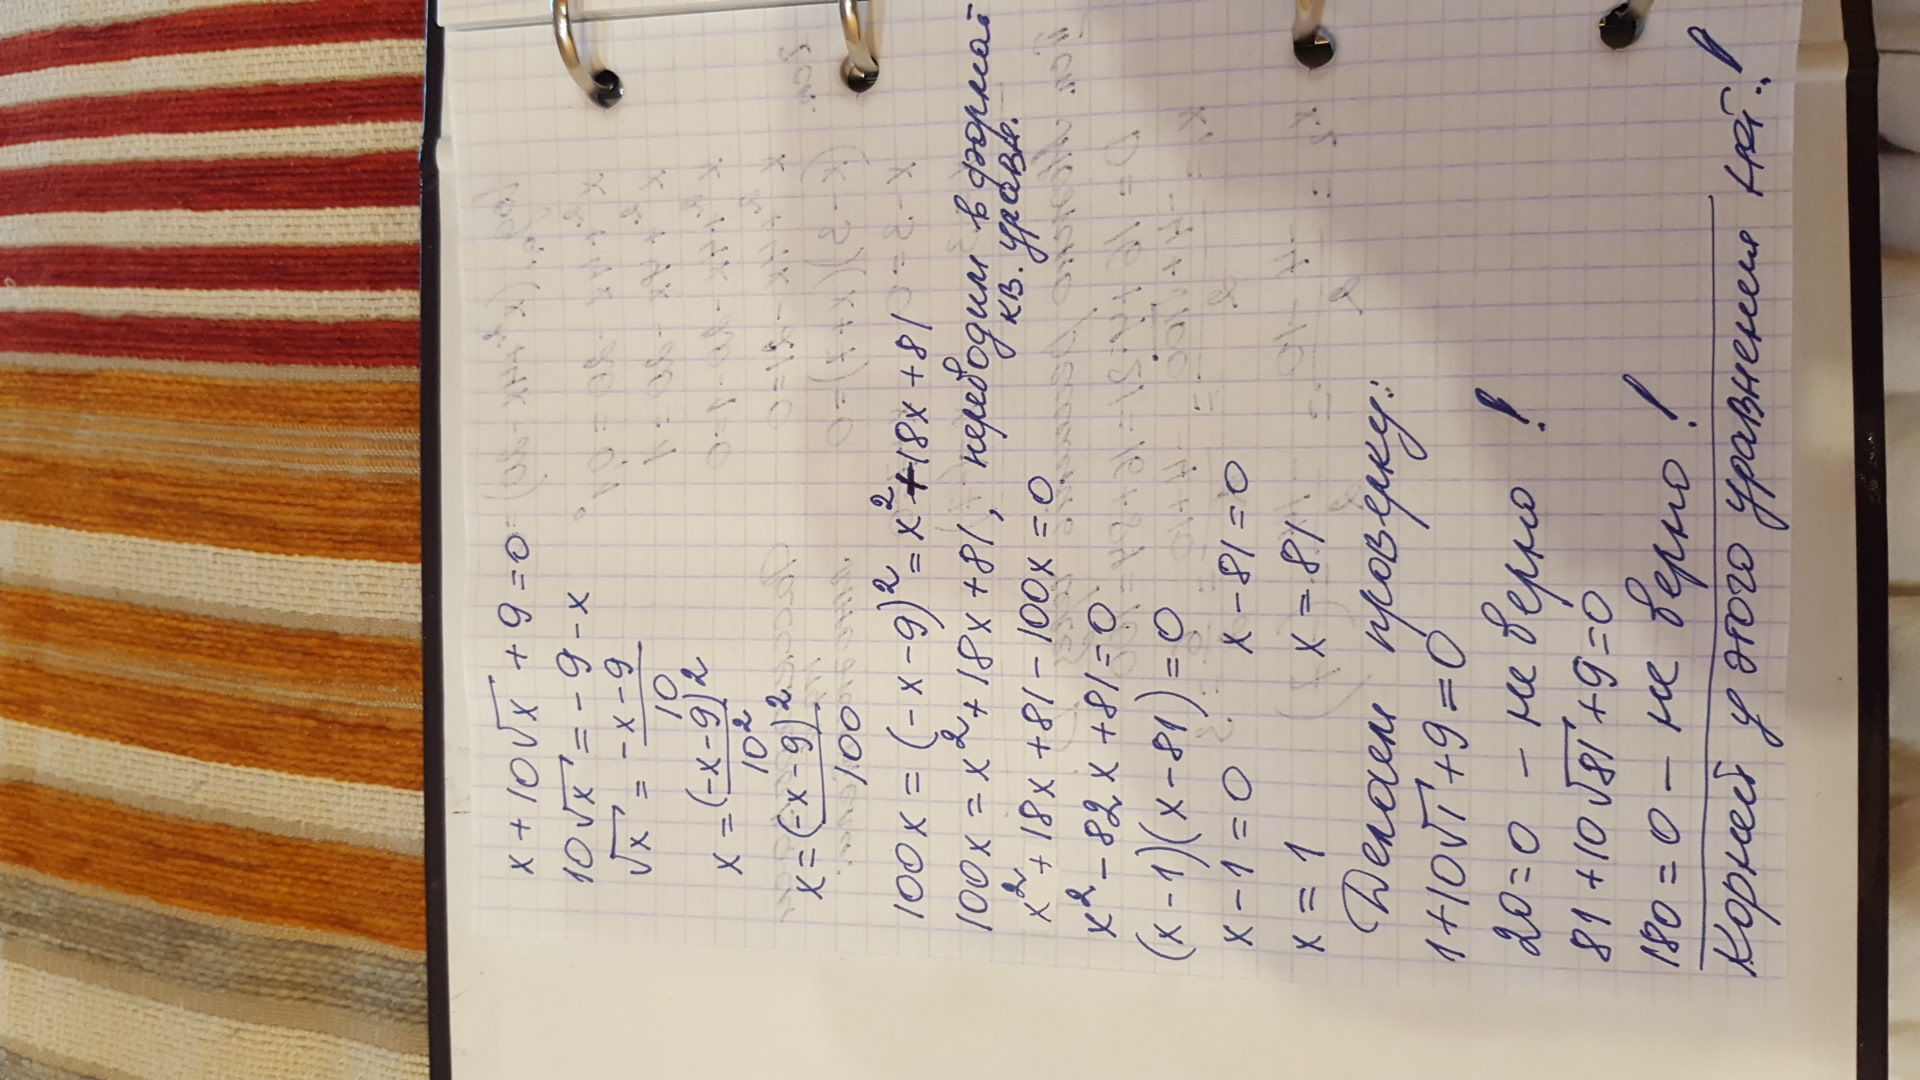 x + 10√x + 9 = 0
10√x = -9 - x
√x = (-x-9)/10
x = (-x-9)²/10²
x = (-x-9)²/100
100x = (-x-9)² = x² + 18x + 81
100x = x² + 18x + 81, переводим в формат
кв. уравн.
x² + 18x + 81 - 100x = 0
x² - 82x + 81 = 0
(x-1)(x-81) = 0
x - 1 = 0 x - 81 = 0
x = 1 x = 81
Делаем проверку:
1 + 10√1 + 9 = 0
20 = 0 - не верно!
81 + 10√81 + 9 = 0
180 = 0 - не верно!
Корней у этого уравнения нет!